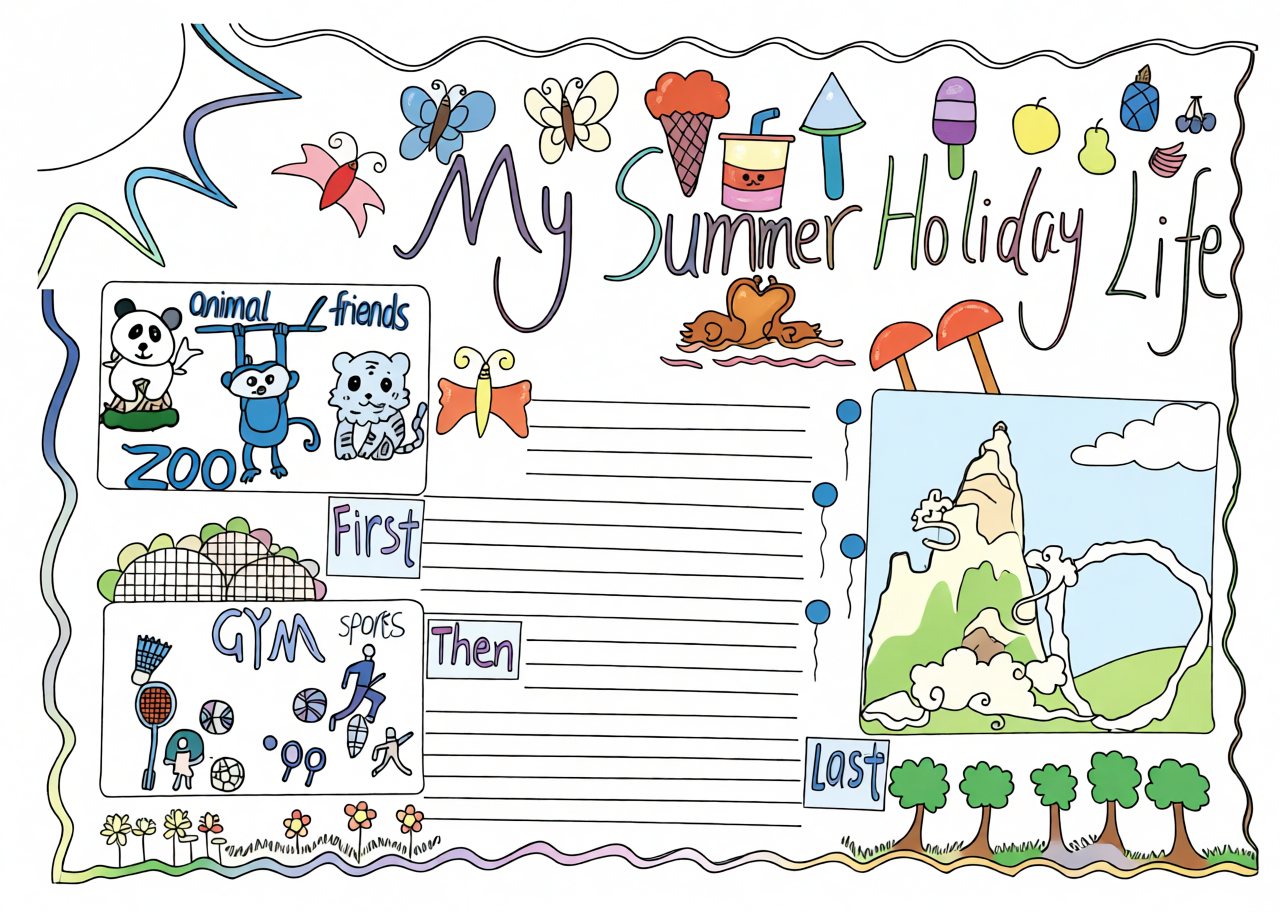 My Summer Holiday Life
animal friends
ZOO
First
GYM sports
Then
Last